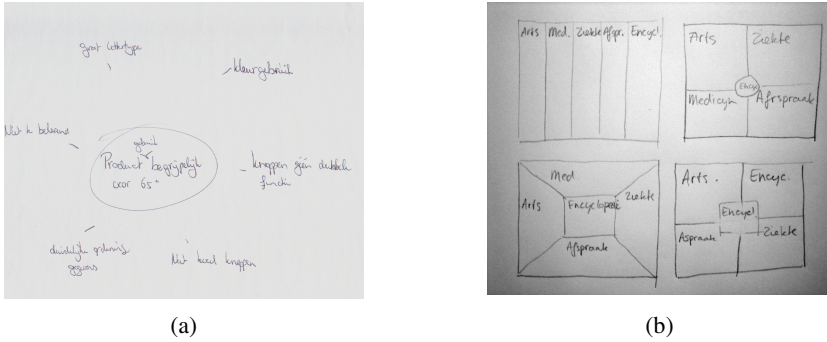 groot lettertype
kleurgebruik
Niet te
gebruik
Product begrijpelijk
voor 65+
knoppen géén dubbele
functie
duidelijke ordening
gegevens
Niet veel knoppen
(a)
Arts Med. Ziekte Afspr. Encycl.
Arts Ziekte
Medicijn Afspraak
Med.
Arts Encyclopedie Ziekte
Afspraak
Arts. Encyc.
Encycl.
Aspraak Ziekte
(b)